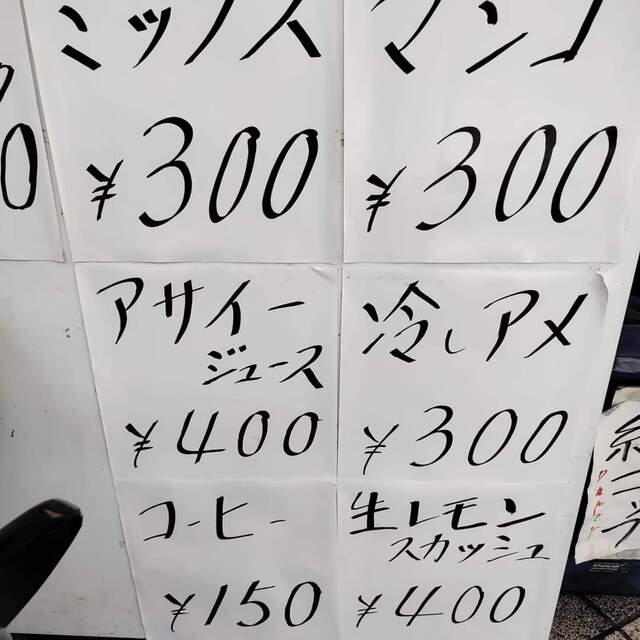 ミックス
¥300
マンゴ
¥300
アサイー
ジュース
¥400
冷しアメ
¥300
コーヒー
¥150
生レモン
スカッシュ
¥400